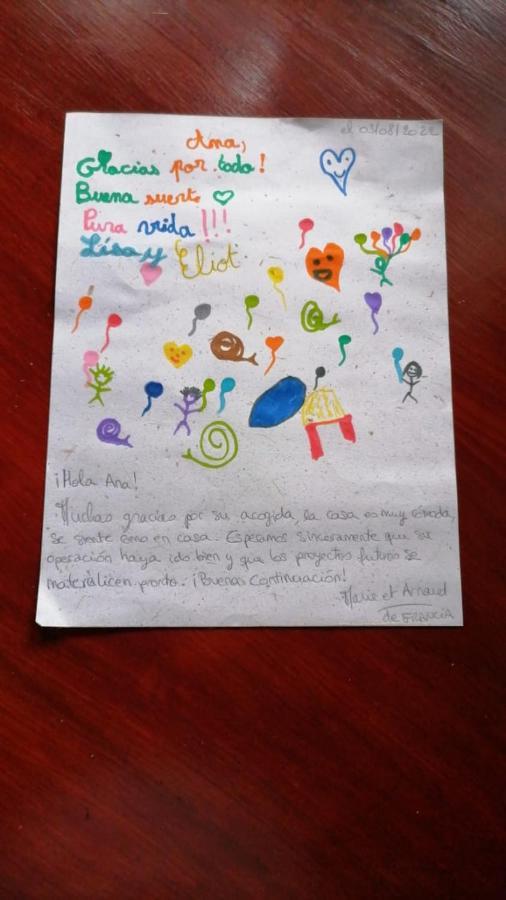 el 03/08/2022
Ana,
Gracias por todo!
Buena suerte
Pura vida!!!
Lisa y Eliot
¡Hola Ana!
Muchas gracias por su acogida, la casa es muy cómoda,
se siente como en casa. Esperamos sinceramente que su
operación haya ido bien y que los proyectos futuros se
materialicen pronto. ¡Buenas continuación!
Marie et Arnaud
de FRANCIA